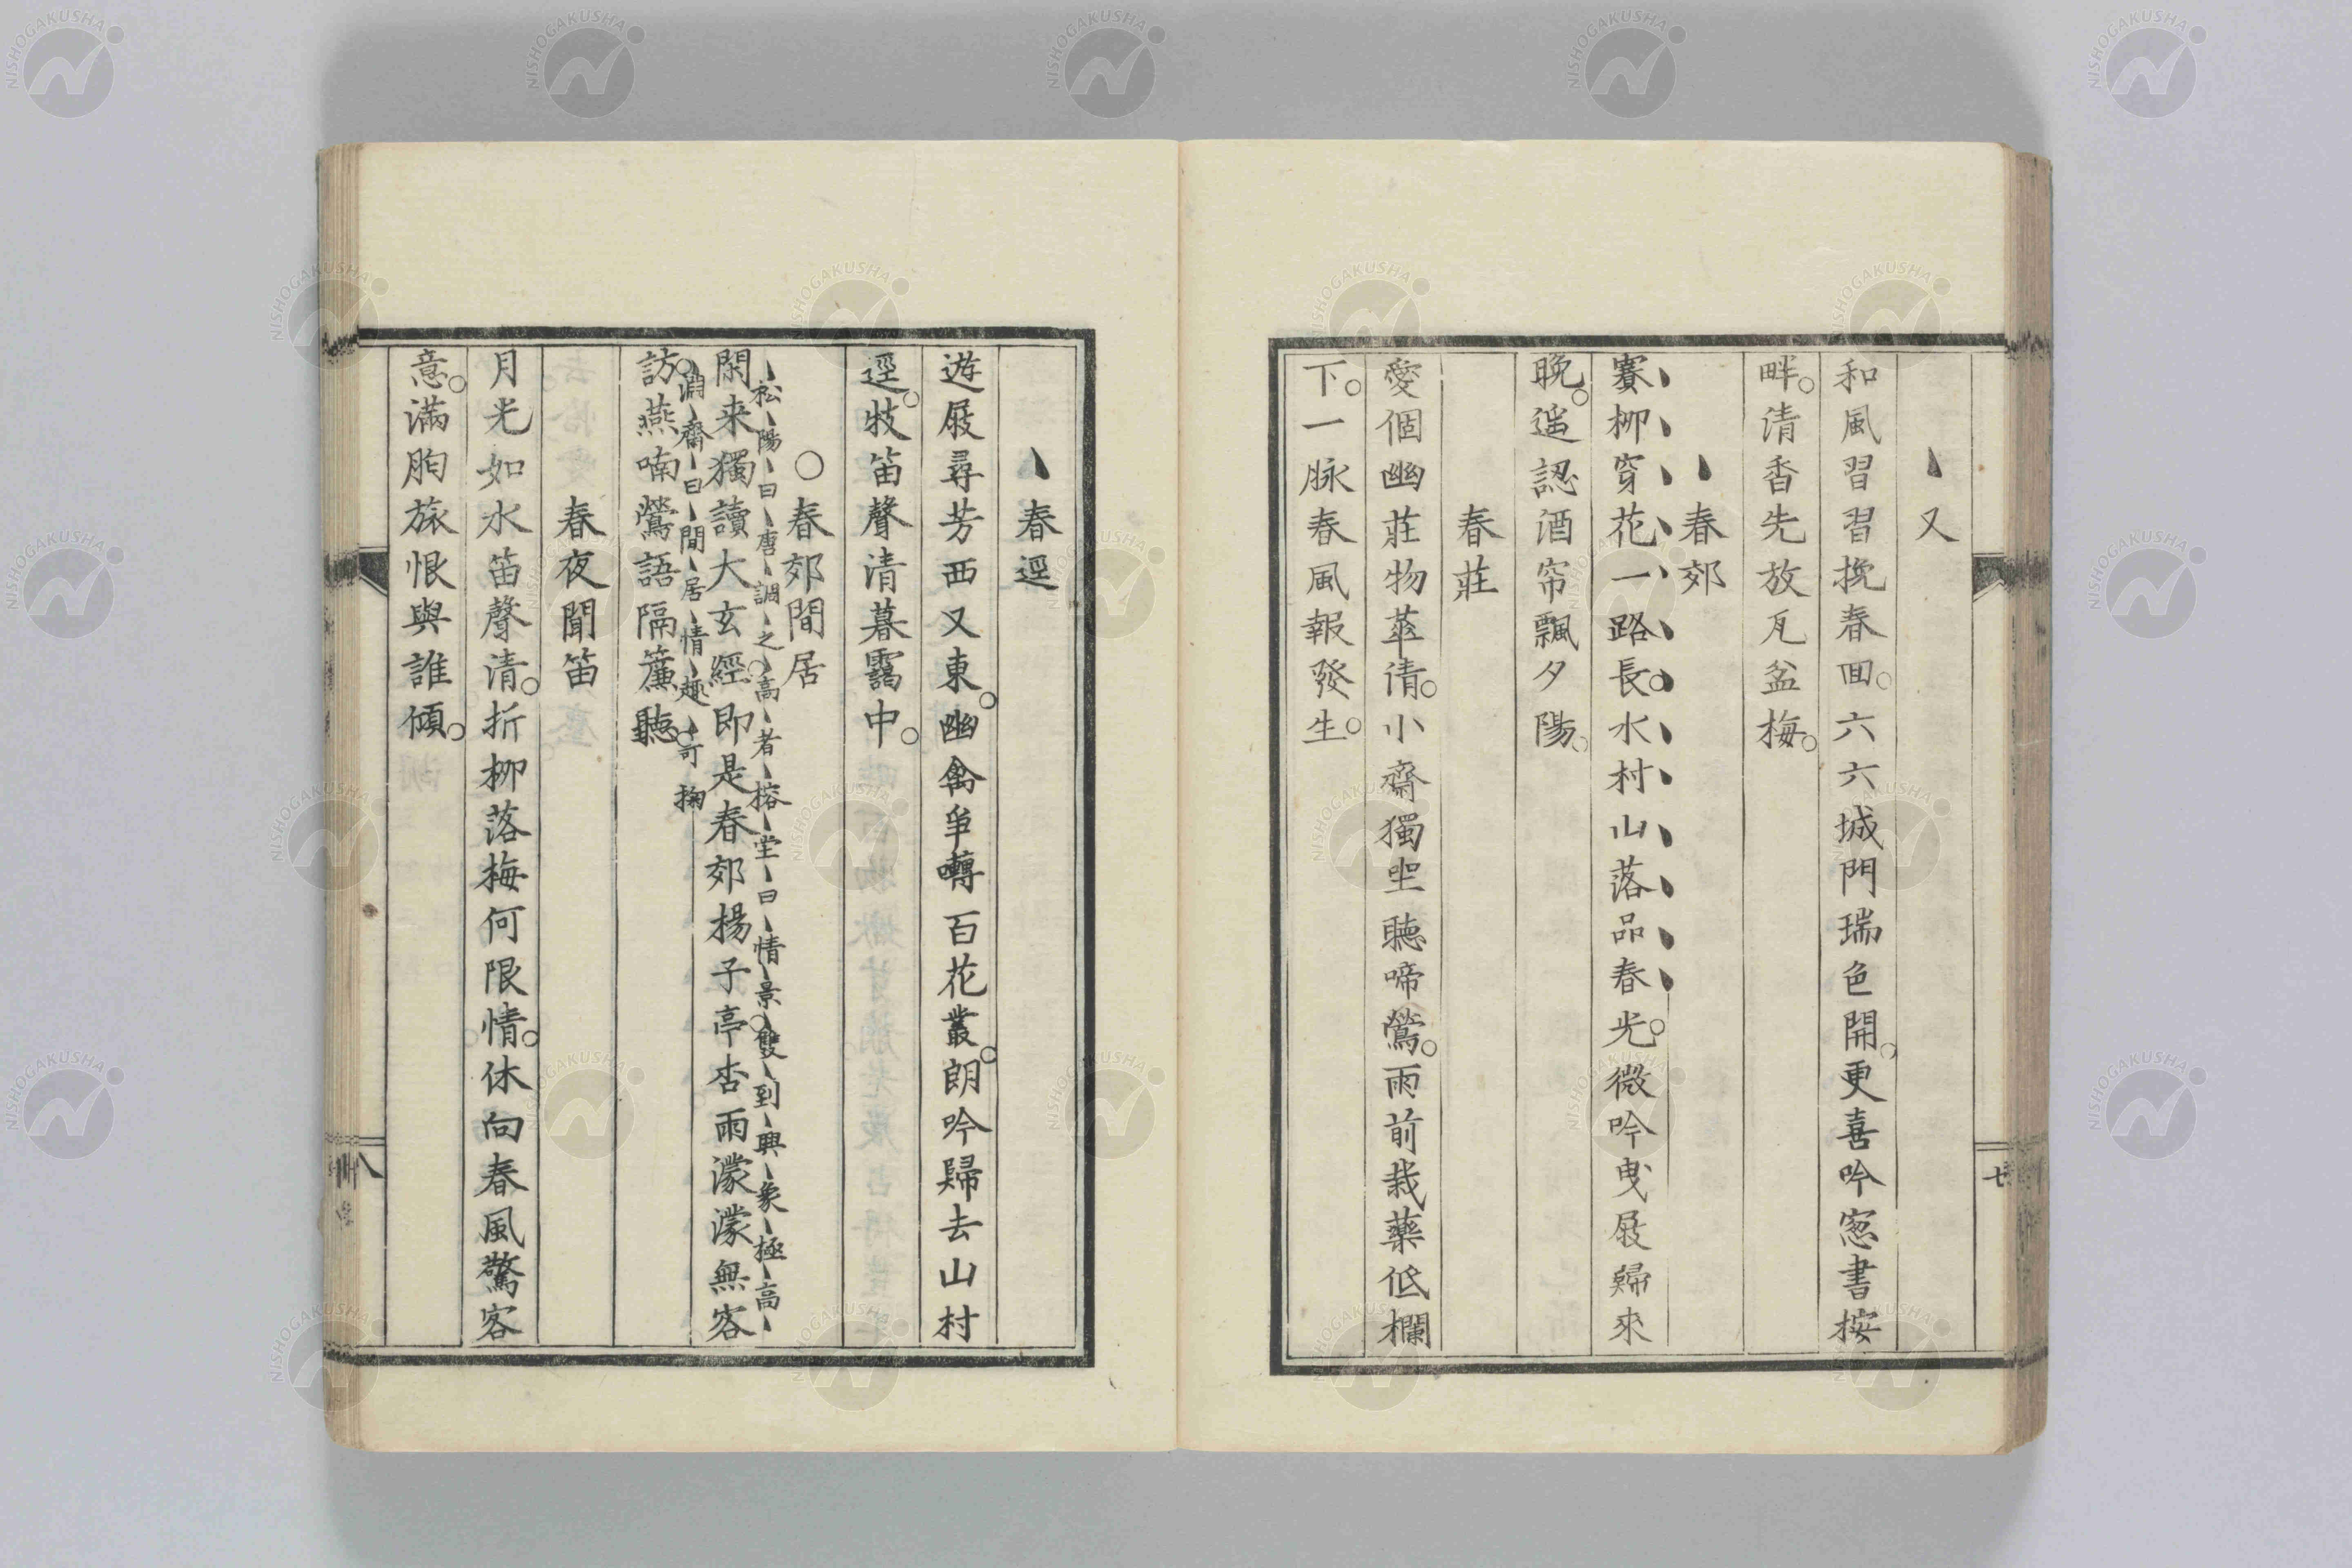 又
和風習習挽春回。六六城門瑞色開。更喜吟窓書按
畔。清香先放瓦盆梅。
春郊
賽柳穿花一路長。水村山落品春光。微吟曳屐歸來
晩。遥認酒帘飄夕陽。
春莊
愛個幽莊物華清。小齋獨坐聽啼鶯。雨前栽藥低欄
下。一脉春風報發生。
七
春逕
遊屐尋芳西又東。幽禽争囀百花叢。朗吟歸去山村
逕。牧笛聲清暮靄中。
○春郊間居
松陽曰唐調之高者榕堂曰情景雙到興象極高
閑来獨讀大玄經。即是春郊楊子亭。杏雨濛濛無客
淵齋曰間居情趣可掬
訪。燕喃鶯語隔簾聽。
春夜聞笛
月光如水笛聲清。折柳落梅何限情。休向春風驚客
意。滿胸旅恨與誰傾。
八
NISHOGAKUSHA